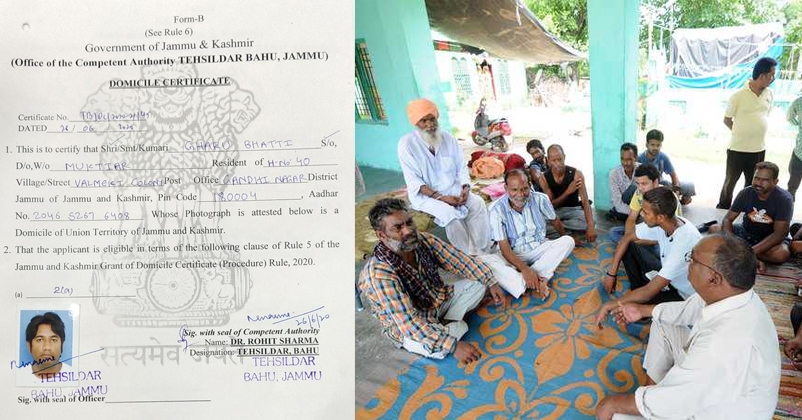 Form-B
(See Rule 6)
Government of Jammu & Kashmir
(Office of the Competent Authority TEHSILDAR BAHU, JAMMU)
DOMICILE CERTIFICATE
Certificate No.
DATED 26/06/2020
1. This is to certify that Shri/Smt/Kumari GHARU BHATTI S/o,
D/o,W/o MUKTIAR Resident of H.No 40
Village/Street VALMEKI COLONY Post Office GANDHI NAGAR District
Jammu of Jammu and Kashmir, Pin Code 180004, Aadhar
No. 2046 5267 6408 Whose Photograph is attested below is a
Domicile of Union Territory of Jammu and Kashmir.
2. That the applicant is eligible in terms of the following clause of Rule 5 of the
Jammu and Kashmir Grant of Domicile Certificate (Procedure) Rule, 2020.
(a) 2(a)
26/6/20
Sig. with seal of Competent Authority
Name: DR. ROHIT SHARMA
Designation: TEHSILDAR, BAHU
सत्यमेव जयते
TEHSILDAR
BAHU, JAMMU
TEHSILDAR
BAHU, JAMMU
Sig. with seal of Officer